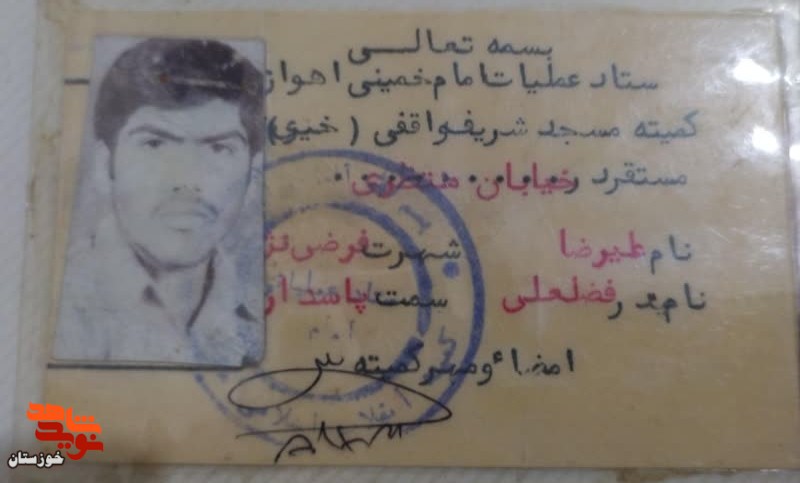 بسمه تعالی
ستاد عملیات امام خمینی اهواز
کمیته مسجد شریف واقفی (خیری)
مستقر در خیابان منتظری
نام علیرضا شهرت فرضی نژ
نام پدر فضلعلی سمت پاسدار
امضاء و مهر کمیته
نوید شاهد
خوزستان